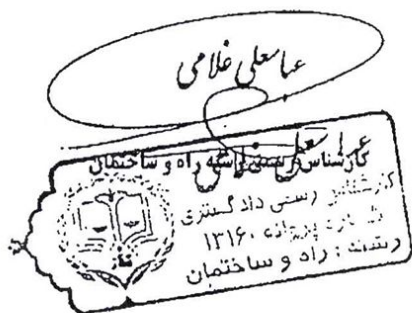 عباسعلی غلامی
کارشناس رسمی رشته راه و ساختمان
کارشناس رسمی دادگستری
شماره پروانه ۱۳۱۶۰
رشته : راه و ساختمان